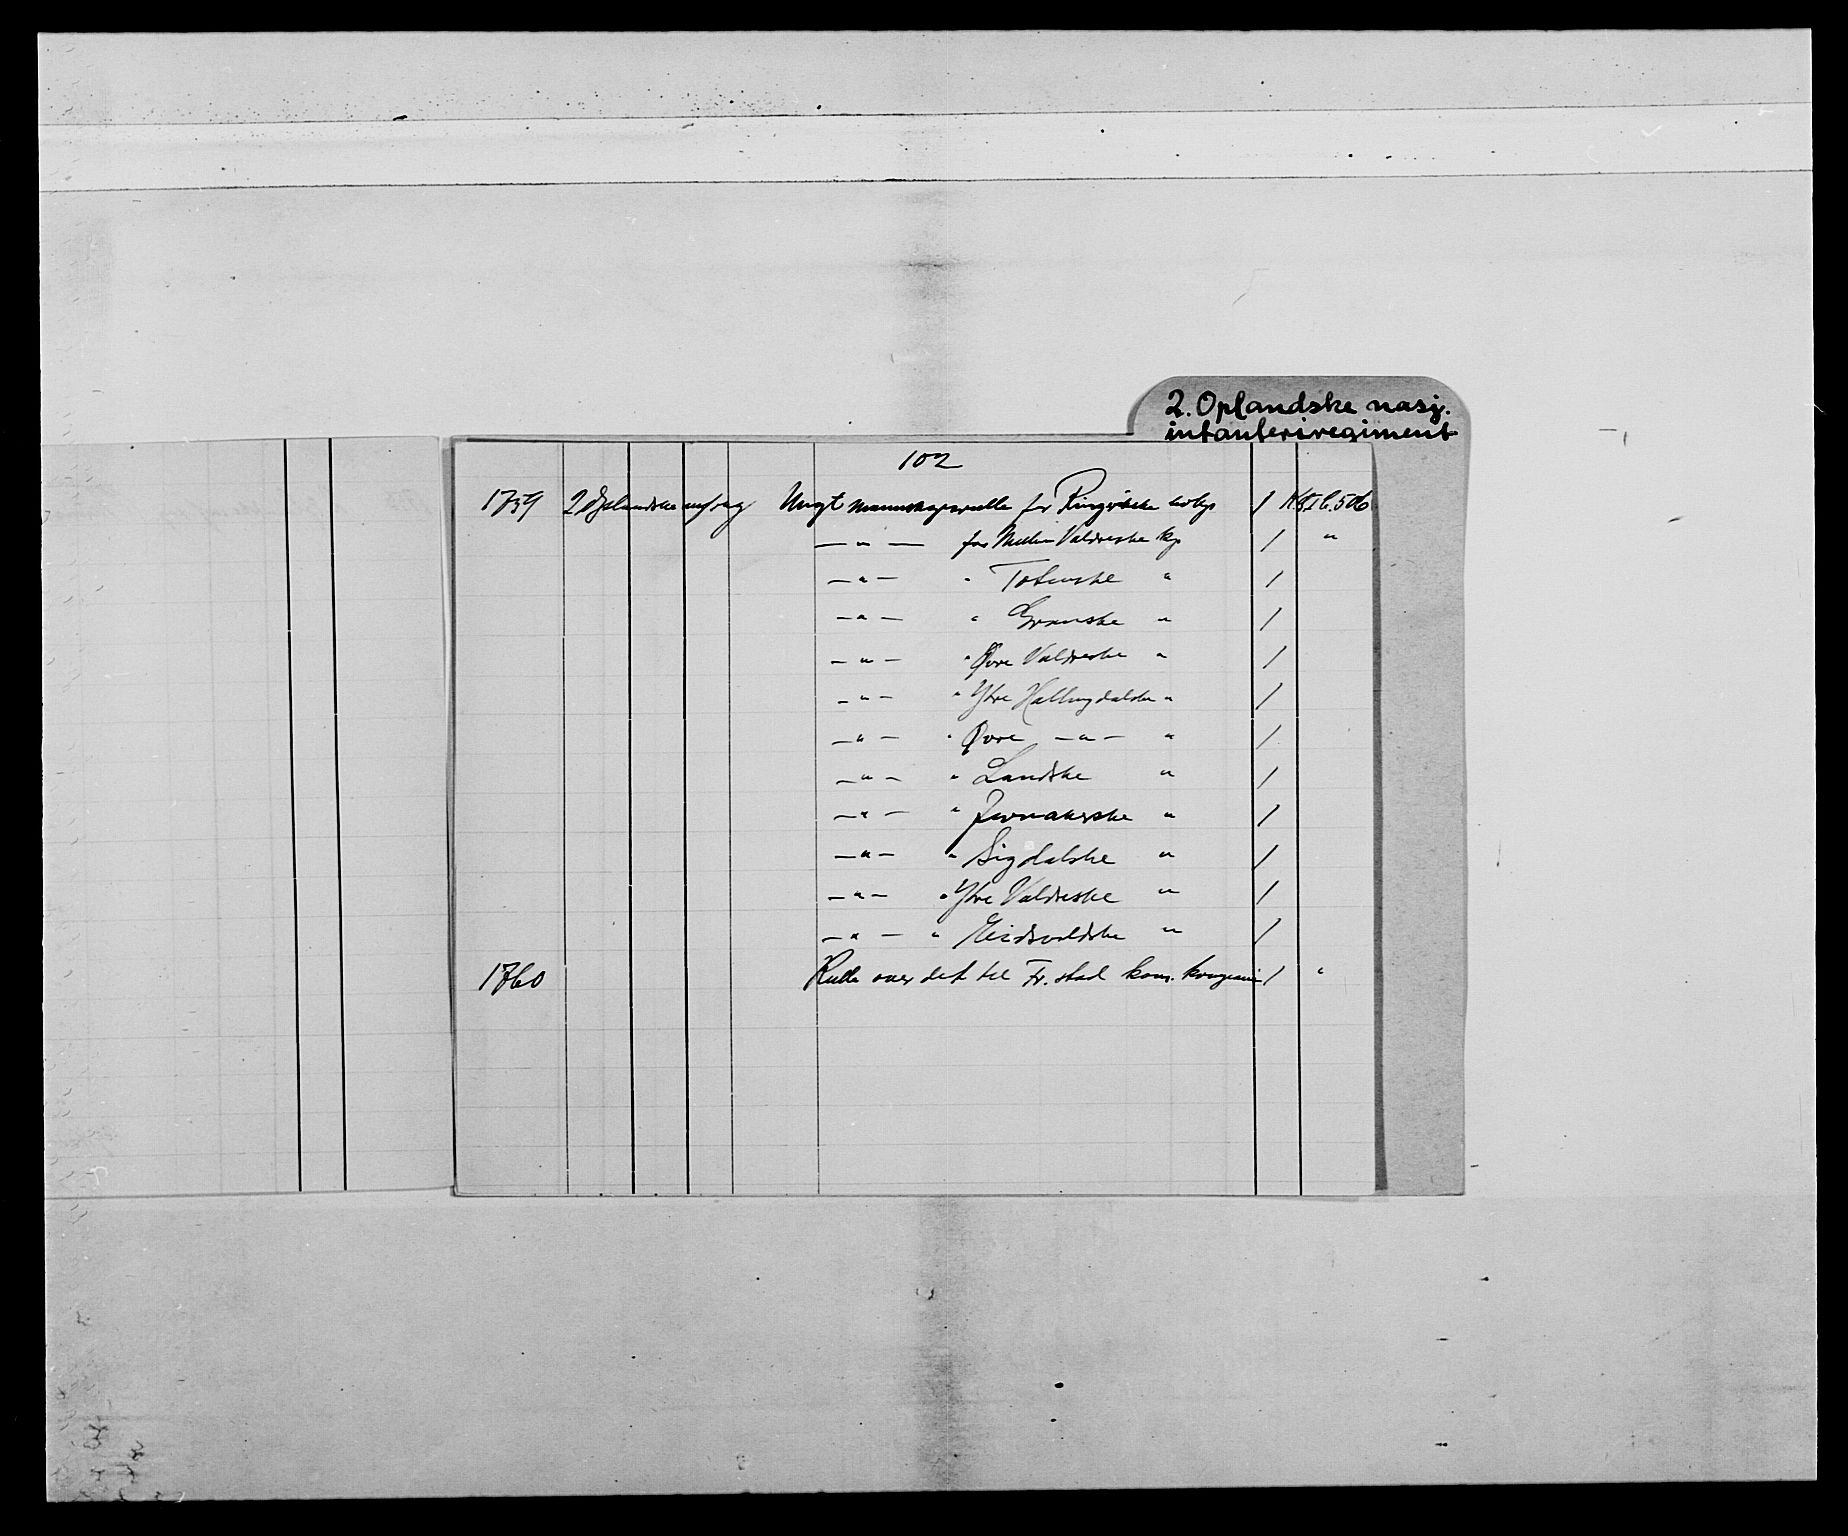 2. Oplandske nasj.
infanteriregiment
102
1759 2 Oplandske inf reg Ungt mannskapsrulle for Ringrikske kp 1 K.8 I C. 506
— " — for Midtre Valdreske kp 1 "
— " — " Totenske " 1
— " — " Granske " 1
— " — " Øvre Valdreske " 1
— " — " Ytre Hallingdalske " 1
— " — " Øvre — " — " 1
— " — " Landske " 1
— " — " Jevnakerske " 1
— " — " Sigdalske " 1
— " — " Ytre Valdreske " 1
— " — " Eidsvoldske " 1
1760 Rulle over det til Fr. stad kom. kompani 1 "